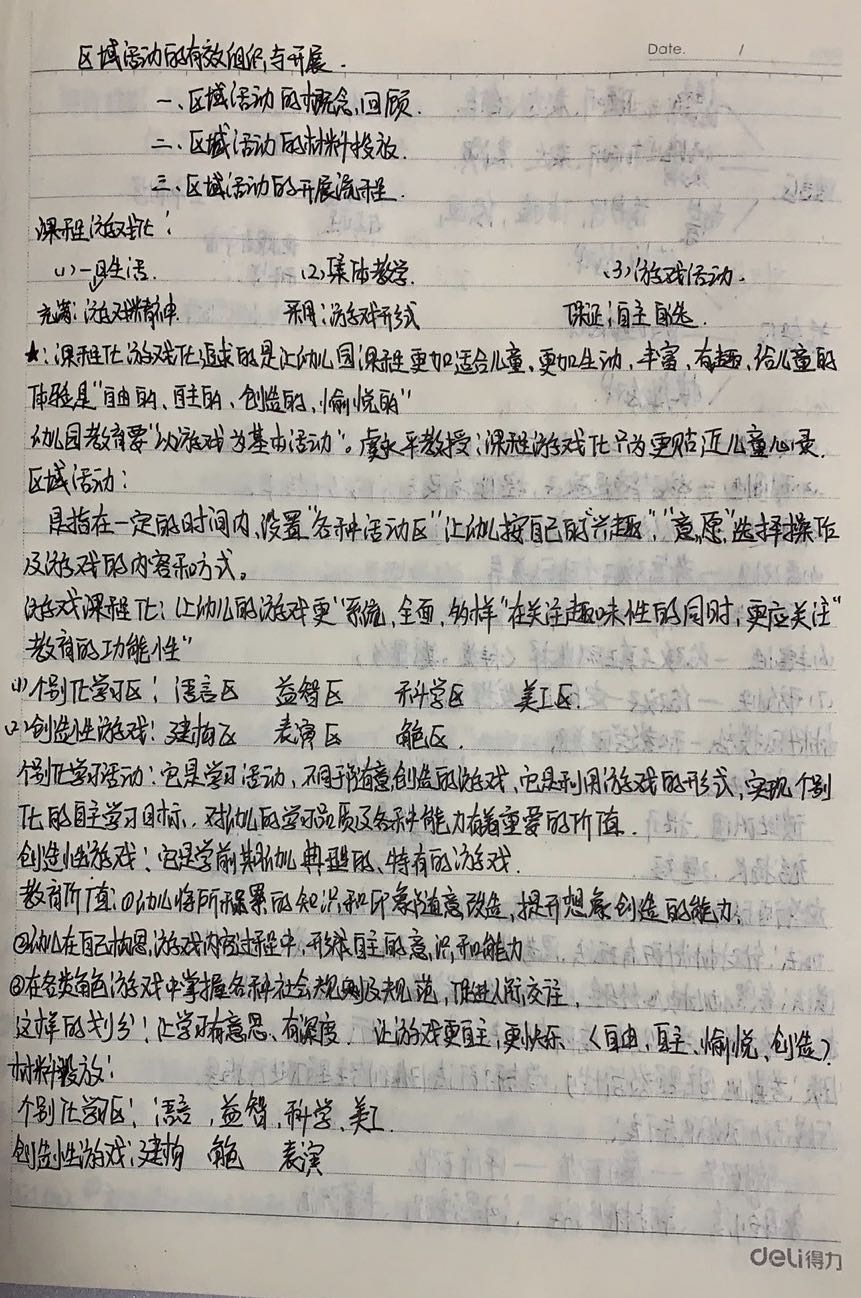 Date. /
区域活动的有效组织与开展.
一、区域活动的概念,回顾.
二、区域活动的材料投放.
三、区域活动的开展流程.
课程游戏化:
(1)一日生活. (2)集体教学. (3)游戏活动.
充满:游戏精神 采用:游戏形式 保证:自主自选.
★:课程化游戏化追求的是让幼儿园课程更加适合儿童、更加生动,丰富,有趣,给儿童的
体验是"自由的、自主的、创造的,愉悦的"
幼儿园教育要"以游戏为基本活动"。虞永平教授:课程游戏化只为更贴近儿童心灵.
区域活动:
是指在一定的时间内,设置"各种活动区"让幼儿按自己的"兴趣","意愿"选择操作
及游戏的内容和方式。
游戏课程化:让幼儿的游戏更"系统,全面,多样"在关注趣味性的同时,更应关注"
教育的功能性"
(1)个别化学习区:语言区 益智区 科学区 美工区.
(2)创造性游戏:建构区 表演区 角色区.
个别化学习活动:它是学习活动,不同于随意创造的游戏,它是利用游戏的形式,实现个别
化的自主学习目标,对幼儿的学习品质及各种能力有着重要的价值.
创造性游戏:它是学前期幼儿典型的、特有的游戏.
教育价值:①幼儿将所积累的知识和印象随意改造,提升想象创造的能力;
②幼儿在自己构思游戏内容过程中,形成自主的意识和能力
③在各类角色游戏中掌握各种社会规则及规范,促进人际交往,
这样的划分:让学习有意思、有深度. 让游戏更自主,更快乐 (自由、自主、愉悦、创造)
材料投放:
个别化学习区:语言,益智,科学、美工
创造性游戏:建构 角色 表演
deli得力